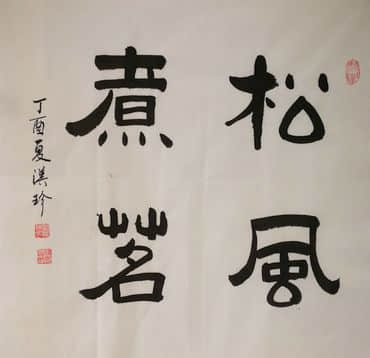 松風
煮茗
丁酉夏漢珍